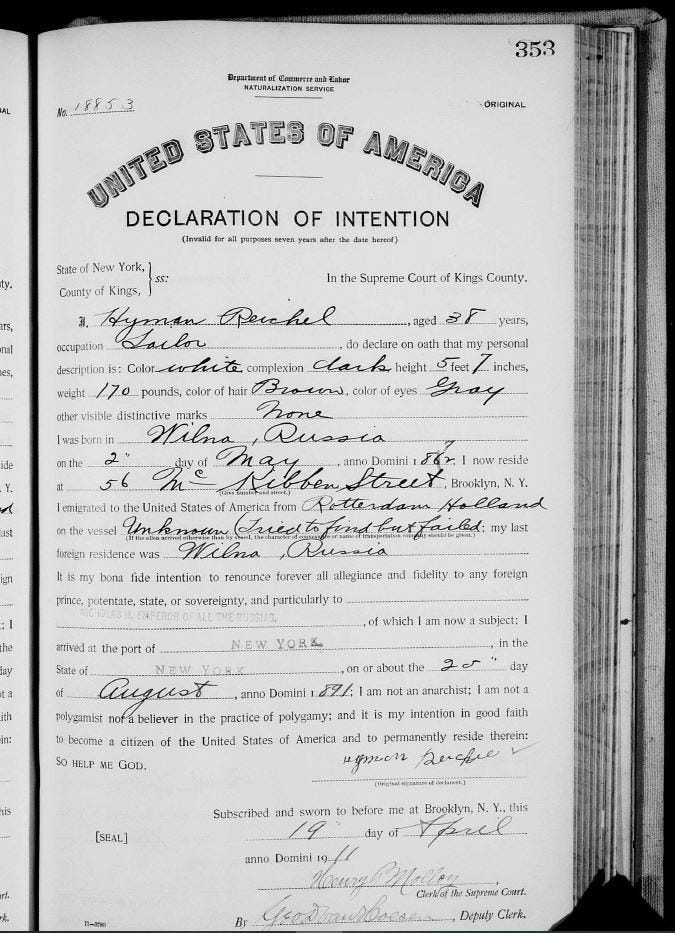 353
Department of Commerce and Labor
NATURALIZATION SERVICE
No. 18853
ORIGINAL
UNITED STATES OF AMERICA
DECLARATION OF INTENTION
(Invalid for all purposes seven years after the date hereof)
State of New York,
County of Kings,
ss:
In the Supreme Court of Kings County.
I, Hyman Reichel, aged 38 years,
occupation Tailor, do declare on oath that my personal
description is: Color white, complexion dark, height 5 feet 7 inches,
weight 170 pounds, color of hair Brown, color of eyes Gray
other visible distinctive marks None
I was born in Wilna, Russia
on the 2" day of May, anno Domini 1 87; I now reside
at 56 McKibben Street, Brooklyn, N. Y.
(Give number and street.)
I emigrated to the United States of America from Rotterdam Holland
on the vessel Unknown (Tried to find but failed; my last
(If the alien arrived otherwise than by vessel, the character of conveyance or name of transportation company should be given.)
foreign residence was Wilna, Russia
It is my bona fide intention to renounce forever all allegiance and fidelity to any foreign
prince, potentate, state, or sovereignty, and particularly to
NICHOLAS II, EMPEROR OF ALL THE RUSSIAS, of which I am now a subject; I
arrived at the port of NEW YORK, in the
State of NEW YORK, on or about the 25" day
of August, anno Domini 1 891; I am not an anarchist; I am not a
polygamist nor a believer in the practice of polygamy; and it is my intention in good faith
to become a citizen of the United States of America and to permanently reside therein:
SO HELP ME GOD.
Hyman Reichel
(Original signature of declarant.)
Subscribed and sworn to before me at Brooklyn, N. Y., this
[SEAL]
19" day of April
anno Domini 1911
Henry P Molloy,
Clerk of the Supreme Court.
By Geo D, Deputy Clerk.